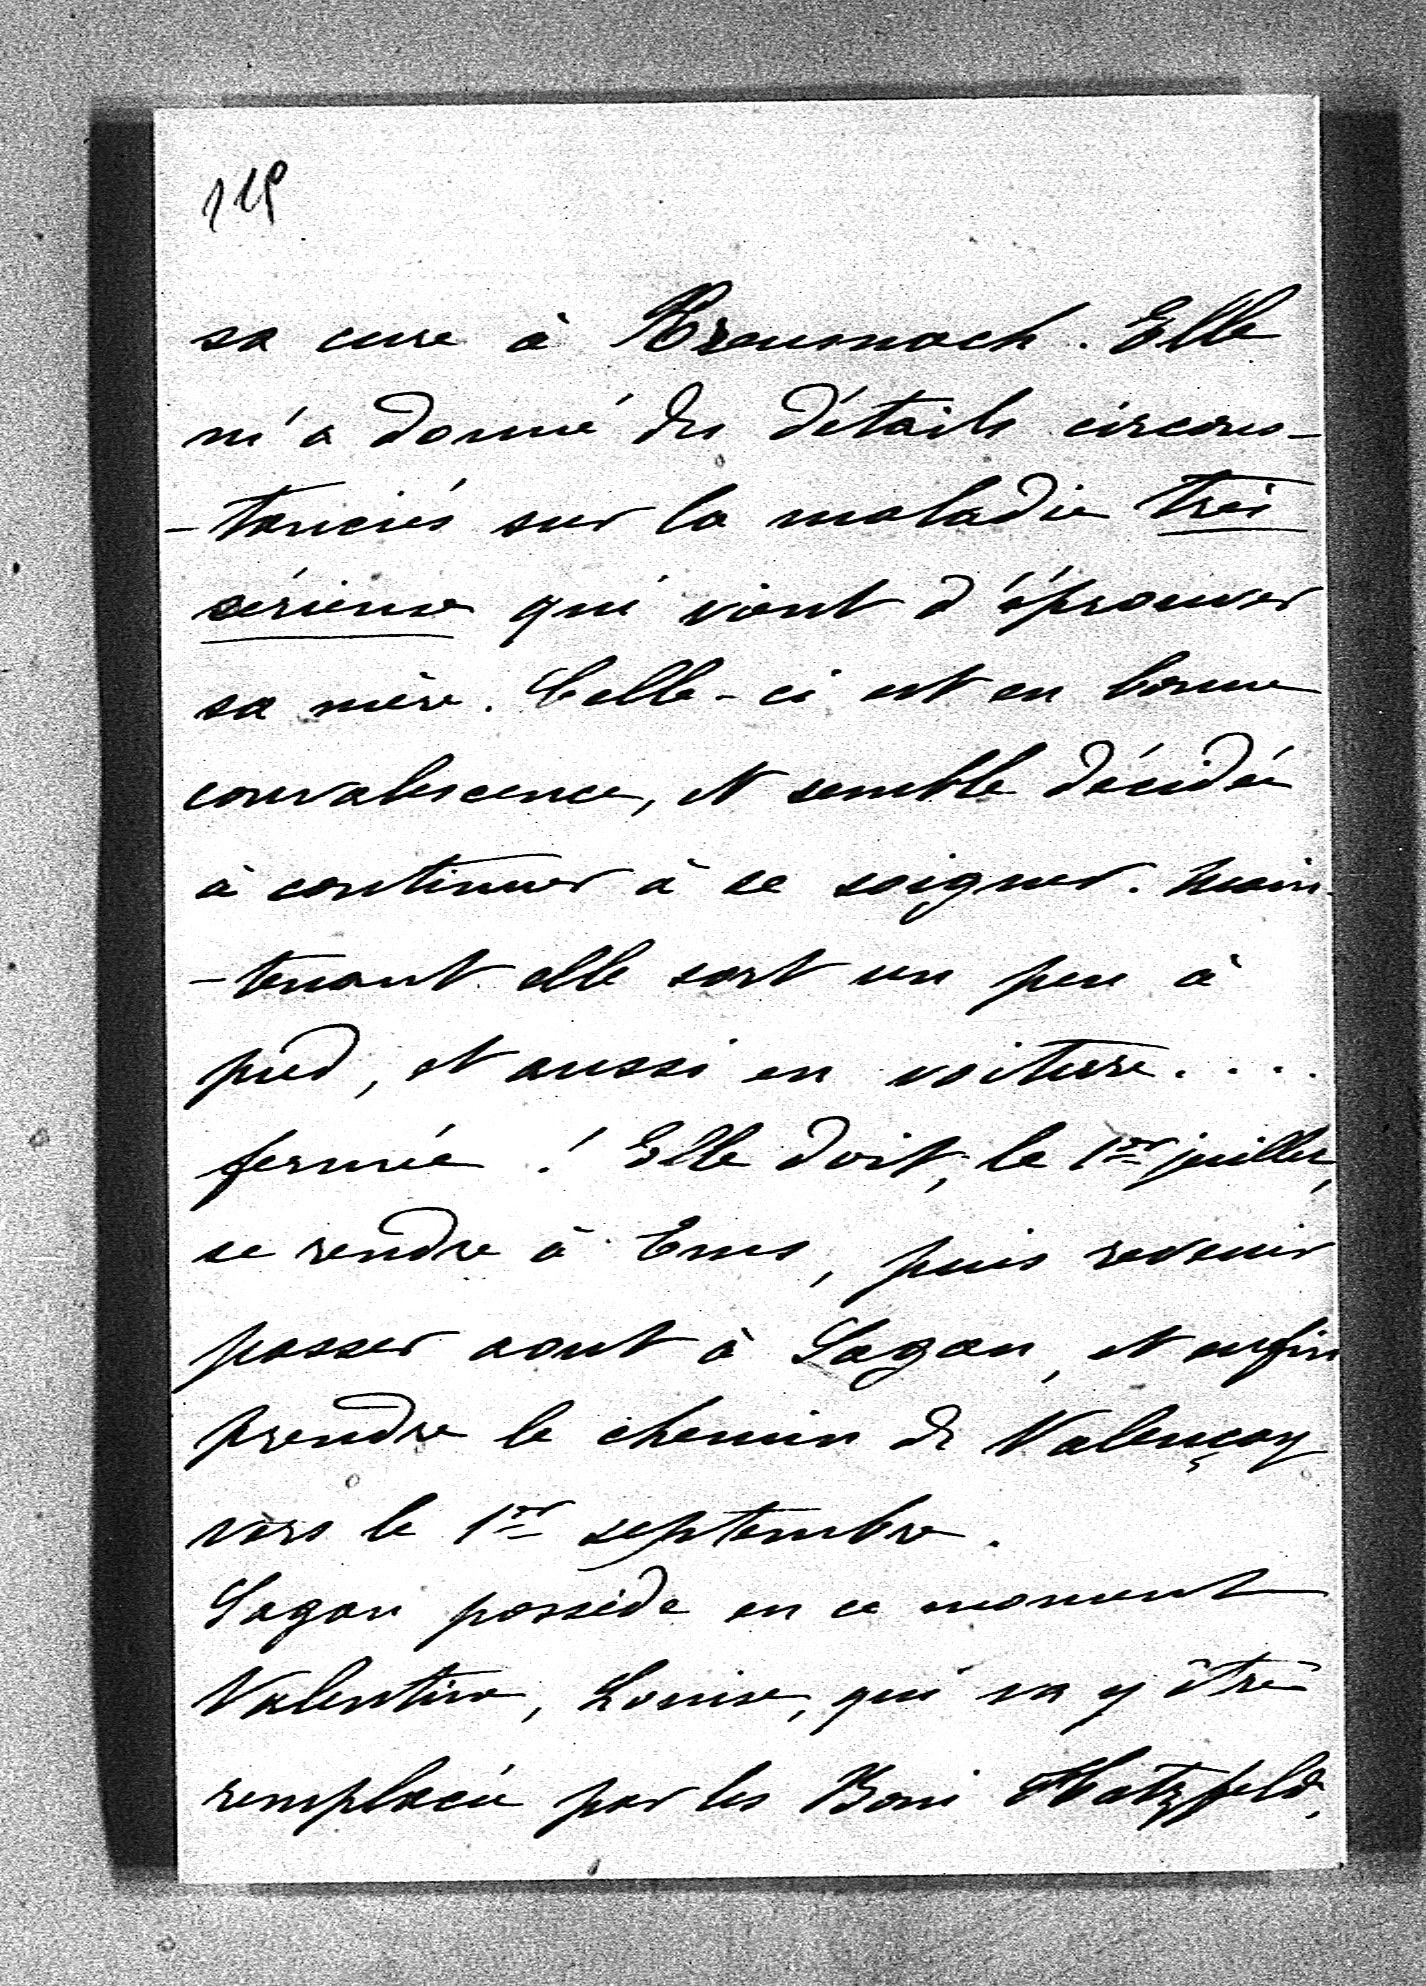 119
sa cure à Kreusnach. Elle
m'a donné des détails circons-
-tanciés sur la maladie très
sérieuse qui vient d'éprouver
sa mère. Celle-ci est en bonne
convalescence, et semble décidée
à continuer à se soigner. Main-
-tenant elle sort un peu à
pied, et aussi en voiture....
fermée ! Elle doit, le 1er juillet,
se rendre à Ems, puis revenir
passer aout à Sagan, et enfin
prendre le chemin de Valençay
vers le 1er septembre.
Sagan possède en ce moment
Valentine, Louise, qui va y être
remplacée par les Boni Hatzfeld,